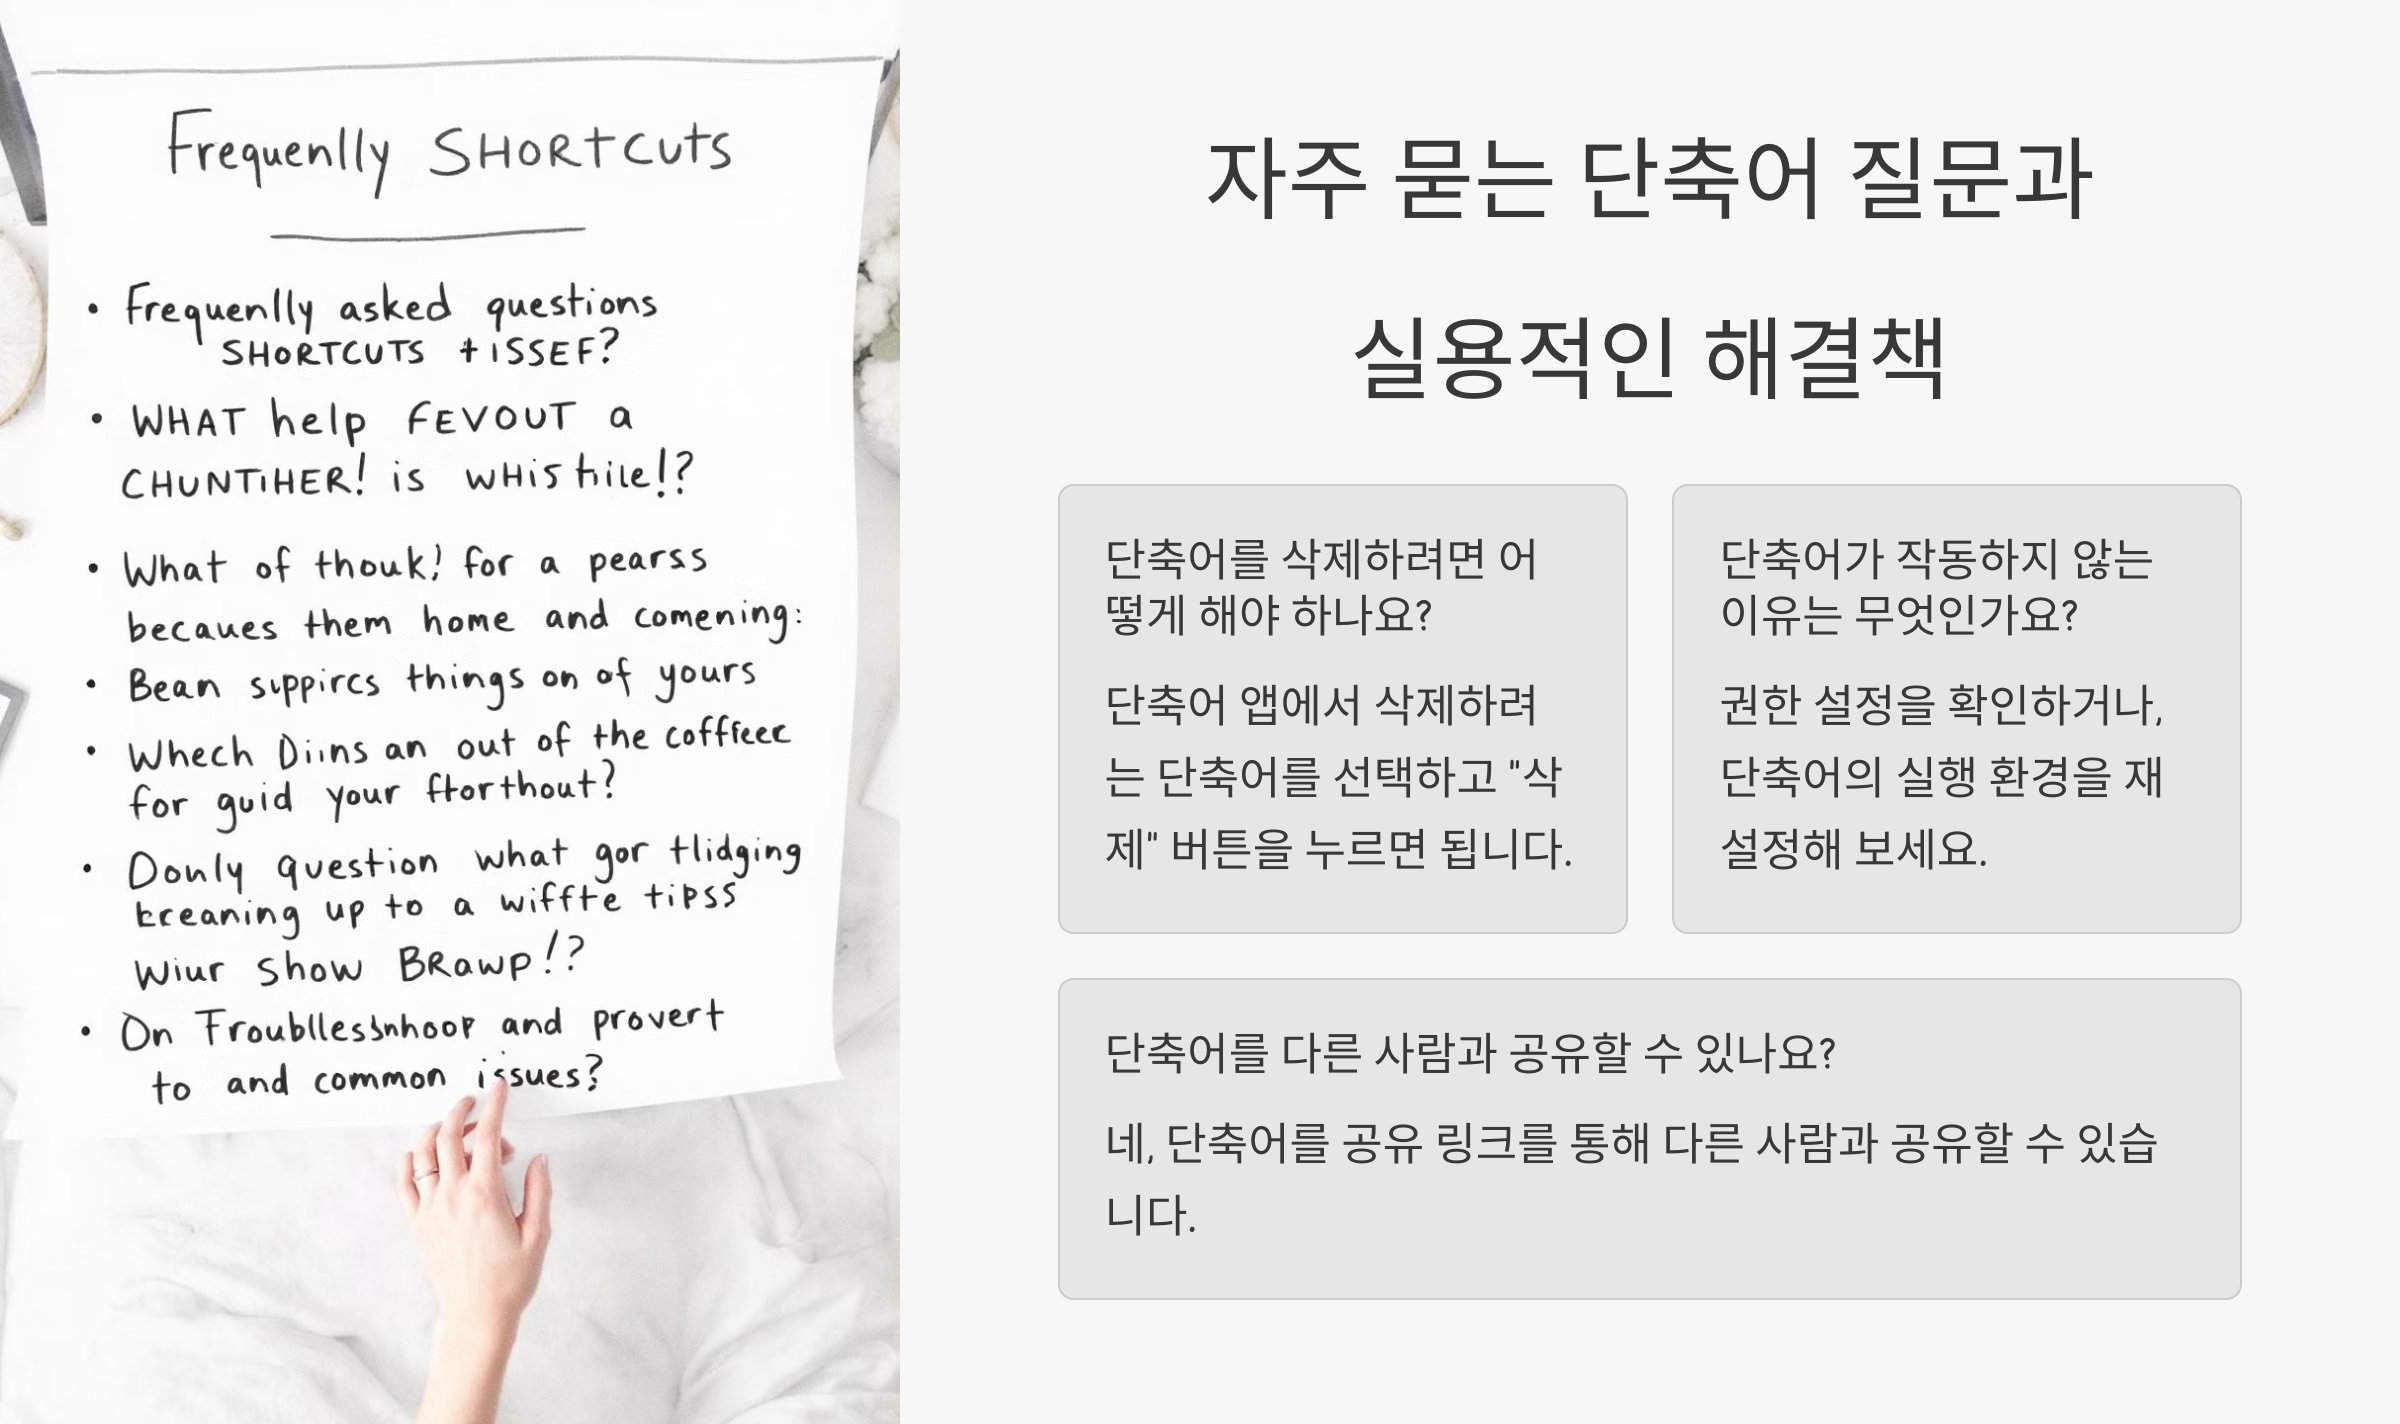 Frequenlly SHORTCUTS
• Frequenlly asked questions
SHORTCUTS + ISSEF?
• WHAT help FEVOUT a
CHUNTIHER! is WHIS hile!?
• What of thouk! for a pearss
becaues them home and comening:
• Bean suppircs things on of yours
• Whech Diins an out of the coffieec
for guid your ftorthout?
• Donly question what gor tlidging
kreaning up to a wiffte tipss
Wiur Show BRawp!?
• On and provert
to and common issues?
자주 묻는 단축어 질문과
실용적인 해결책
단축어를 삭제하려면 어
떻게 해야 하나요?
단축어 앱에서 삭제하려
는 단축어를 선택하고 "삭
제" 버튼을 누르면 됩니다.
단축어가 작동하지 않는
이유는 무엇인가요?
권한 설정을 확인하거나,
단축어의 실행 환경을 재
설정해 보세요.
단축어를 다른 사람과 공유할 수 있나요?
네, 단축어를 공유 링크를 통해 다른 사람과 공유할 수 있습
니다.